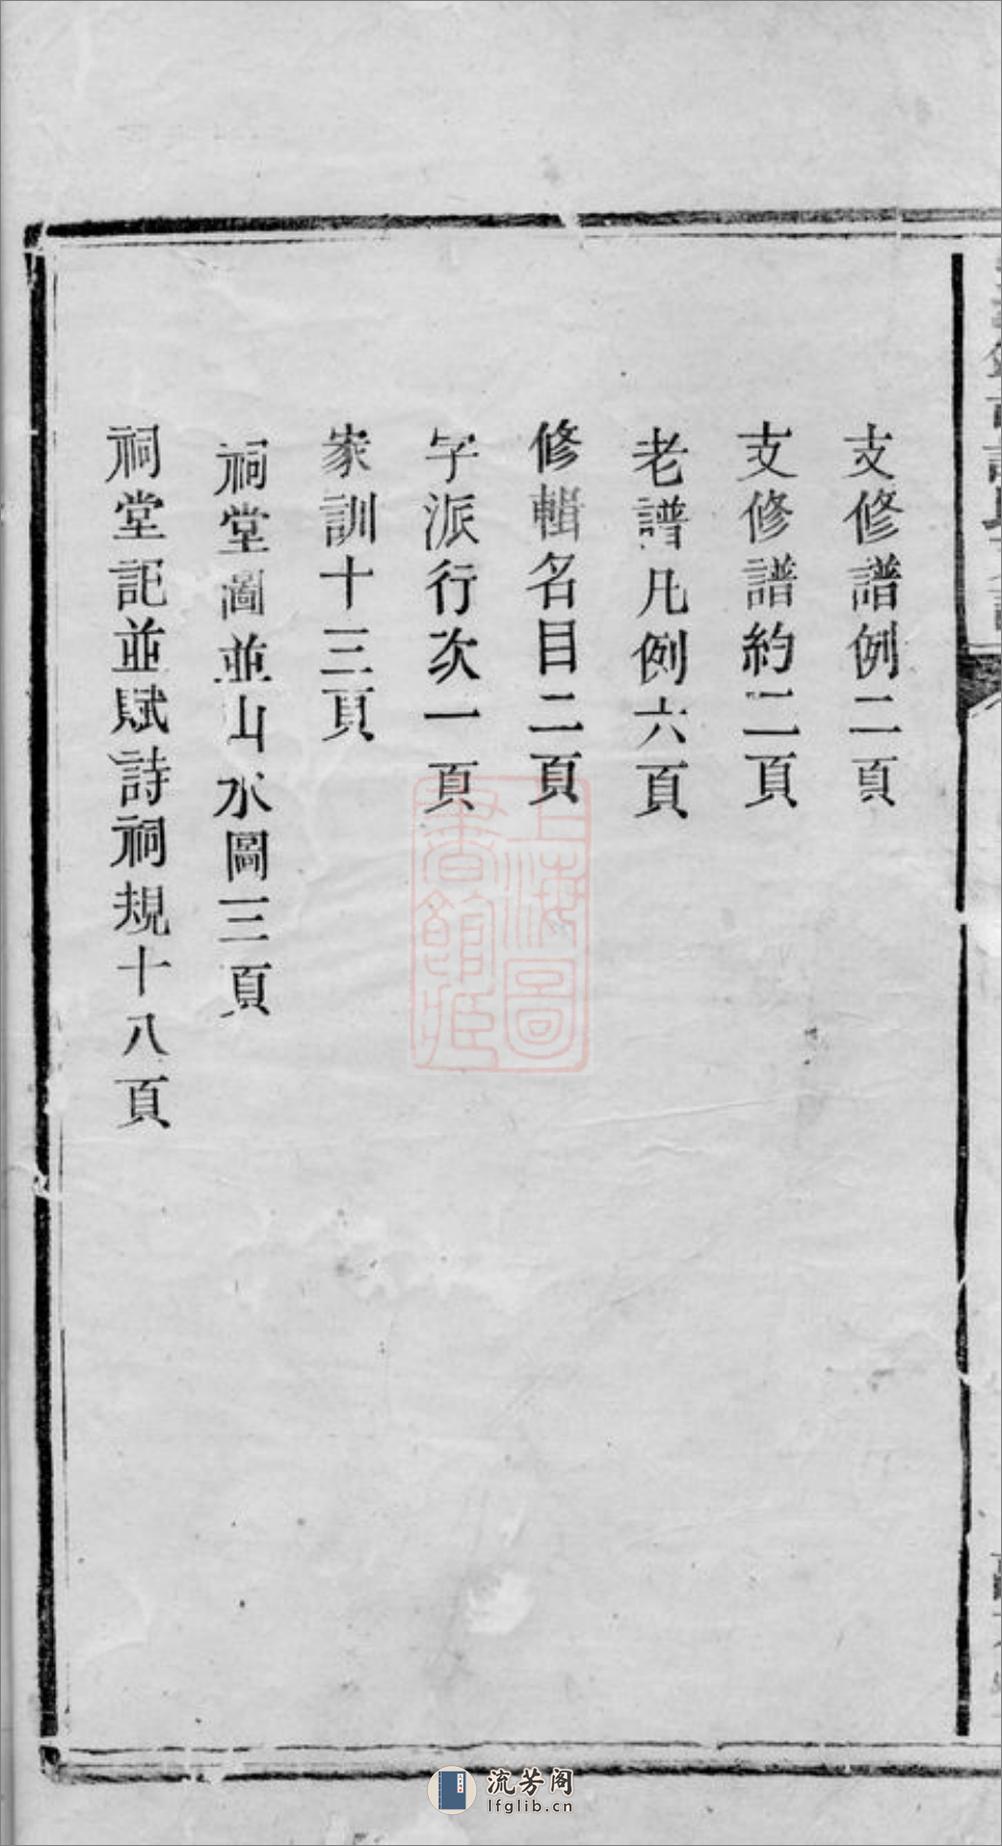 支修譜例二頁
支修譜約二頁
老譜凡例六頁
修輯名目二頁
字派行次一頁
家訓十三頁
祠堂圖並山水圖三頁
祠堂記並賦詩祠規十八頁
上海圖書館藏
流芳阁
lfglib.cn